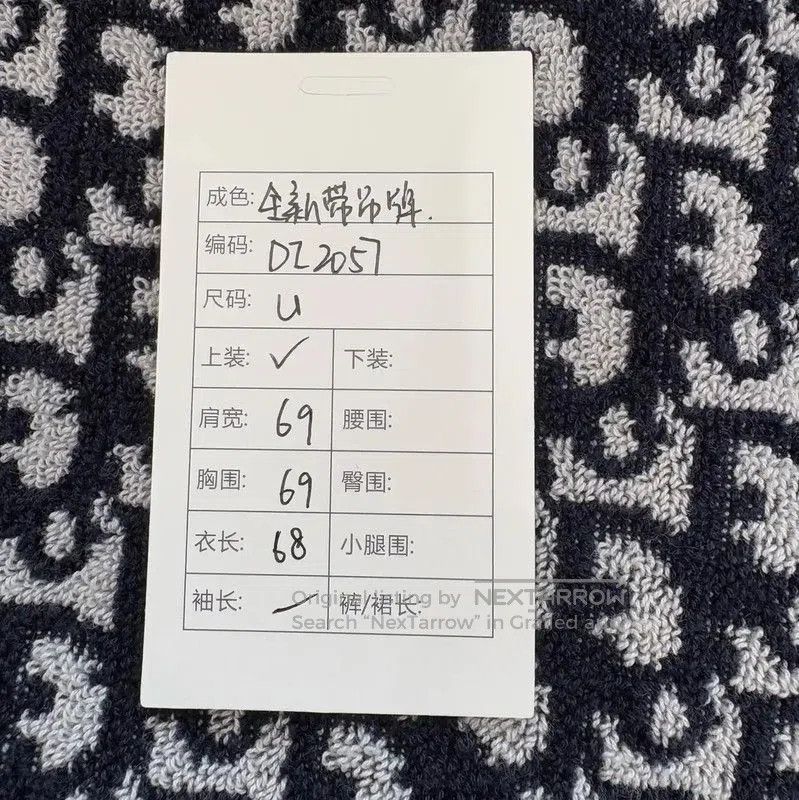 成色: 全新带吊牌.
编码: DZ2057
尺码: U
上装: ✓ 下装:
肩宽: 69 腰围:
胸围: 69 臀围:
衣长: 68 小腿围:
袖长: — 裤/裙长:
Original listing by NEXTARROW
Search "NexTarrow" in Grailed app